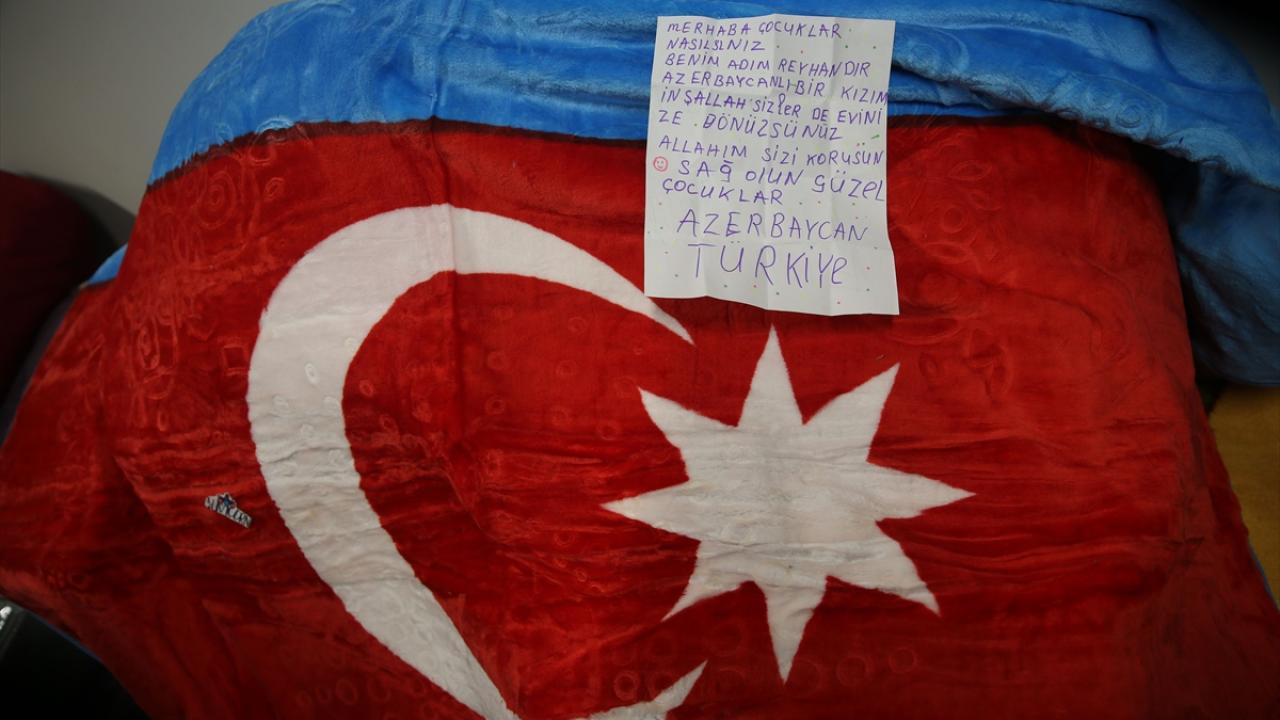 MERHABA ÇOCUKLAR
NASILSINIZ
BENİM ADIM REYHANDIR
AZERBAYCANLI BİR KIZIM
İNŞALLAH SİZLER DE EVİNİ
ZE DÖNÜZSÜNÜZ
ALLAHIM SİZİ KORUSUN
SAĞ OLUN GÜZEL
ÇOCUKLAR
AZERBAYCAN
TÜRKİYE